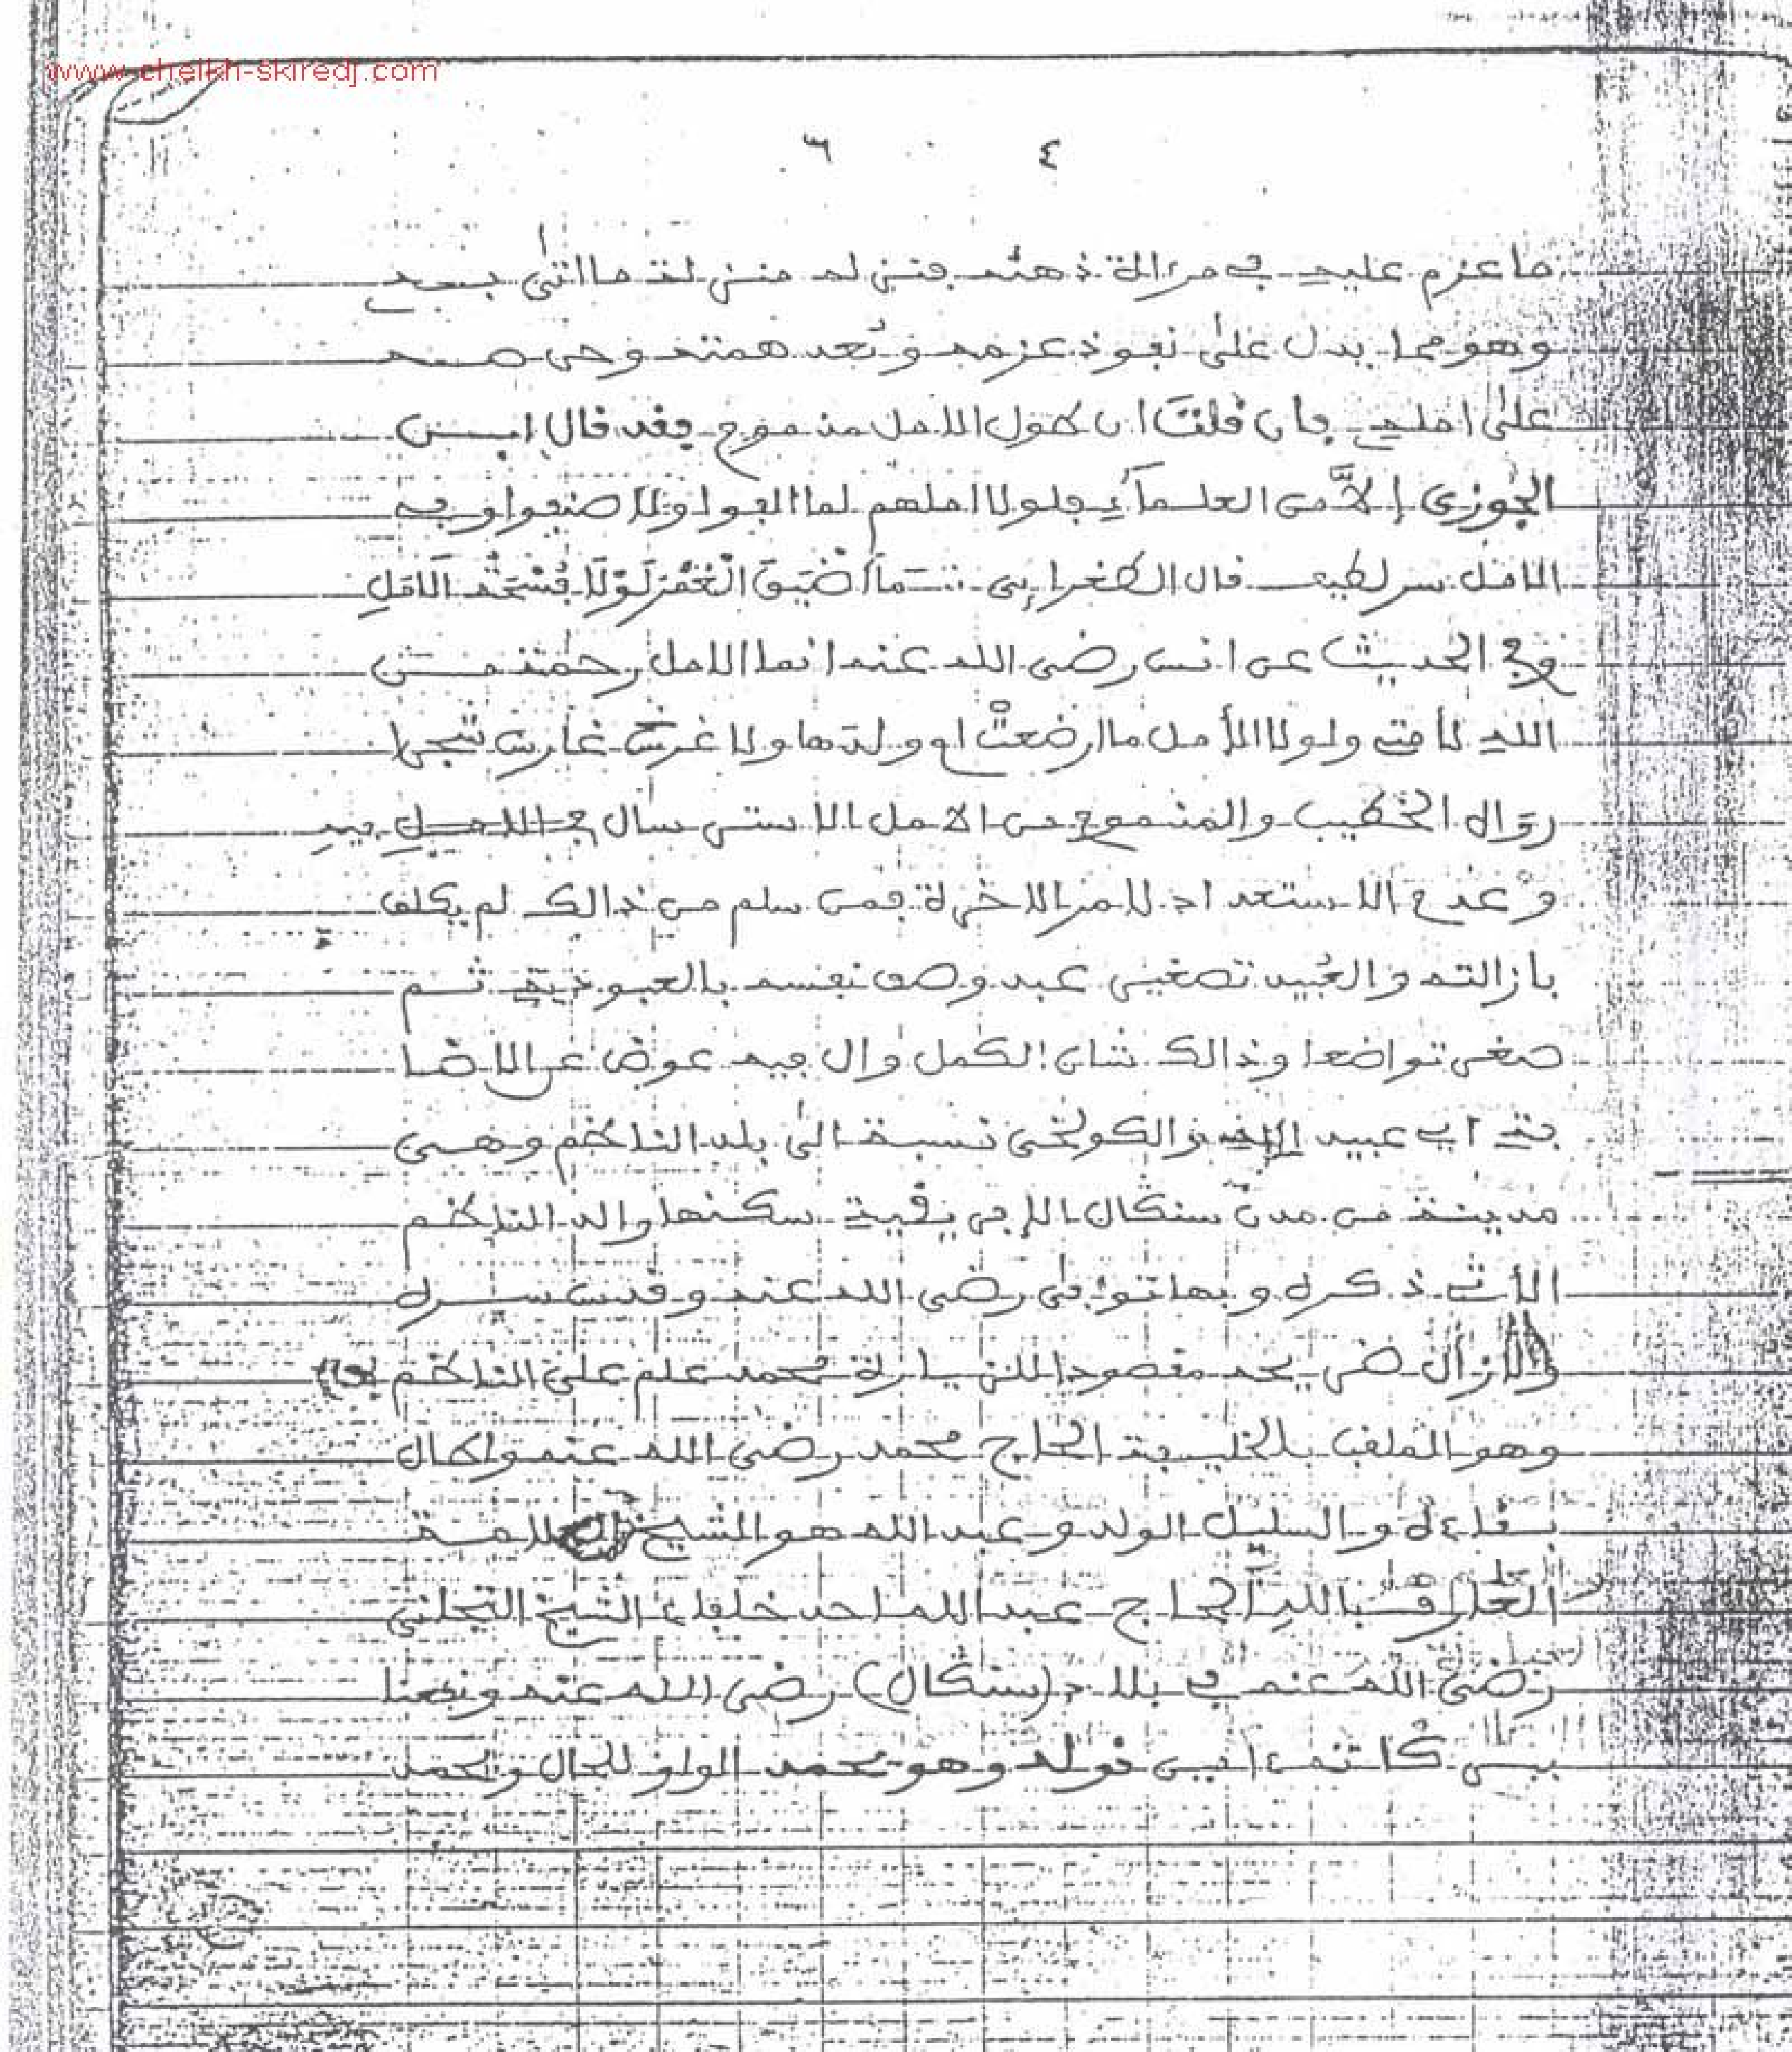 www.cheikh-skiredj.com
٤ ٦
ما عزم عليه في مرءاة ذهنه فنزله منزلة ما اتى به
وهو مما يدل على نفوذ عزمه وبعد همته وحرصه
على امله فان قلت ان طول الامل مذموم فقد قال ابن
الجوزى إلا من العلماء فلولا املهم لما الفوا ولا صنفوا وفي
الامل سر لطيف قال الطغراءي مَا أَضْيَقَ الْعُمْرَ لَوْلَا فُسْحَةُ الْاَمَلِ
وفي الحديث عن انس رضى الله عنه انما الامل رحمة من
الله لأمتي ولولا الأمل ما ارضعتْ ام ولدها ولا غرس غارس شجرا
رواه الخطيب والمذموم من الامل الاسترسال فيه
وعدم الاستعداد لامر الاخرة فمن سلم من ذالك لم يكلف
بازالته والعُبيد تصغير عبد وصف نفسه بالعبودية ثم
صغر تواضعا وذالك شان الكمل وال فيه عوض عن الاضا
فة اي عبيد الله والكولخى نسبة الى بلد الناظم وهى
مدينة من مدن سنڭال الإفريقية سكنها والد الناظم
الأتي ذكره وبها توفى رضى الله عنه وقدس سره
ولازال ضريحه مقصودا للزيارة محمد علم على الناظم
وهو الملقب بالخليفة الحاج محمد رضى الله عنه واطال
بقاءه والسليل الولد وعبد الله هو الشيخ العلامة
العارف بالله الحاج عبد الله احد خلفاء الشيخ التجانى
رضى الله عنه في بلاد (سنڭال) رضى الله عنه ونفعنا
ببركاته ءامين قوله وهو محمد الواو للحال والحمد